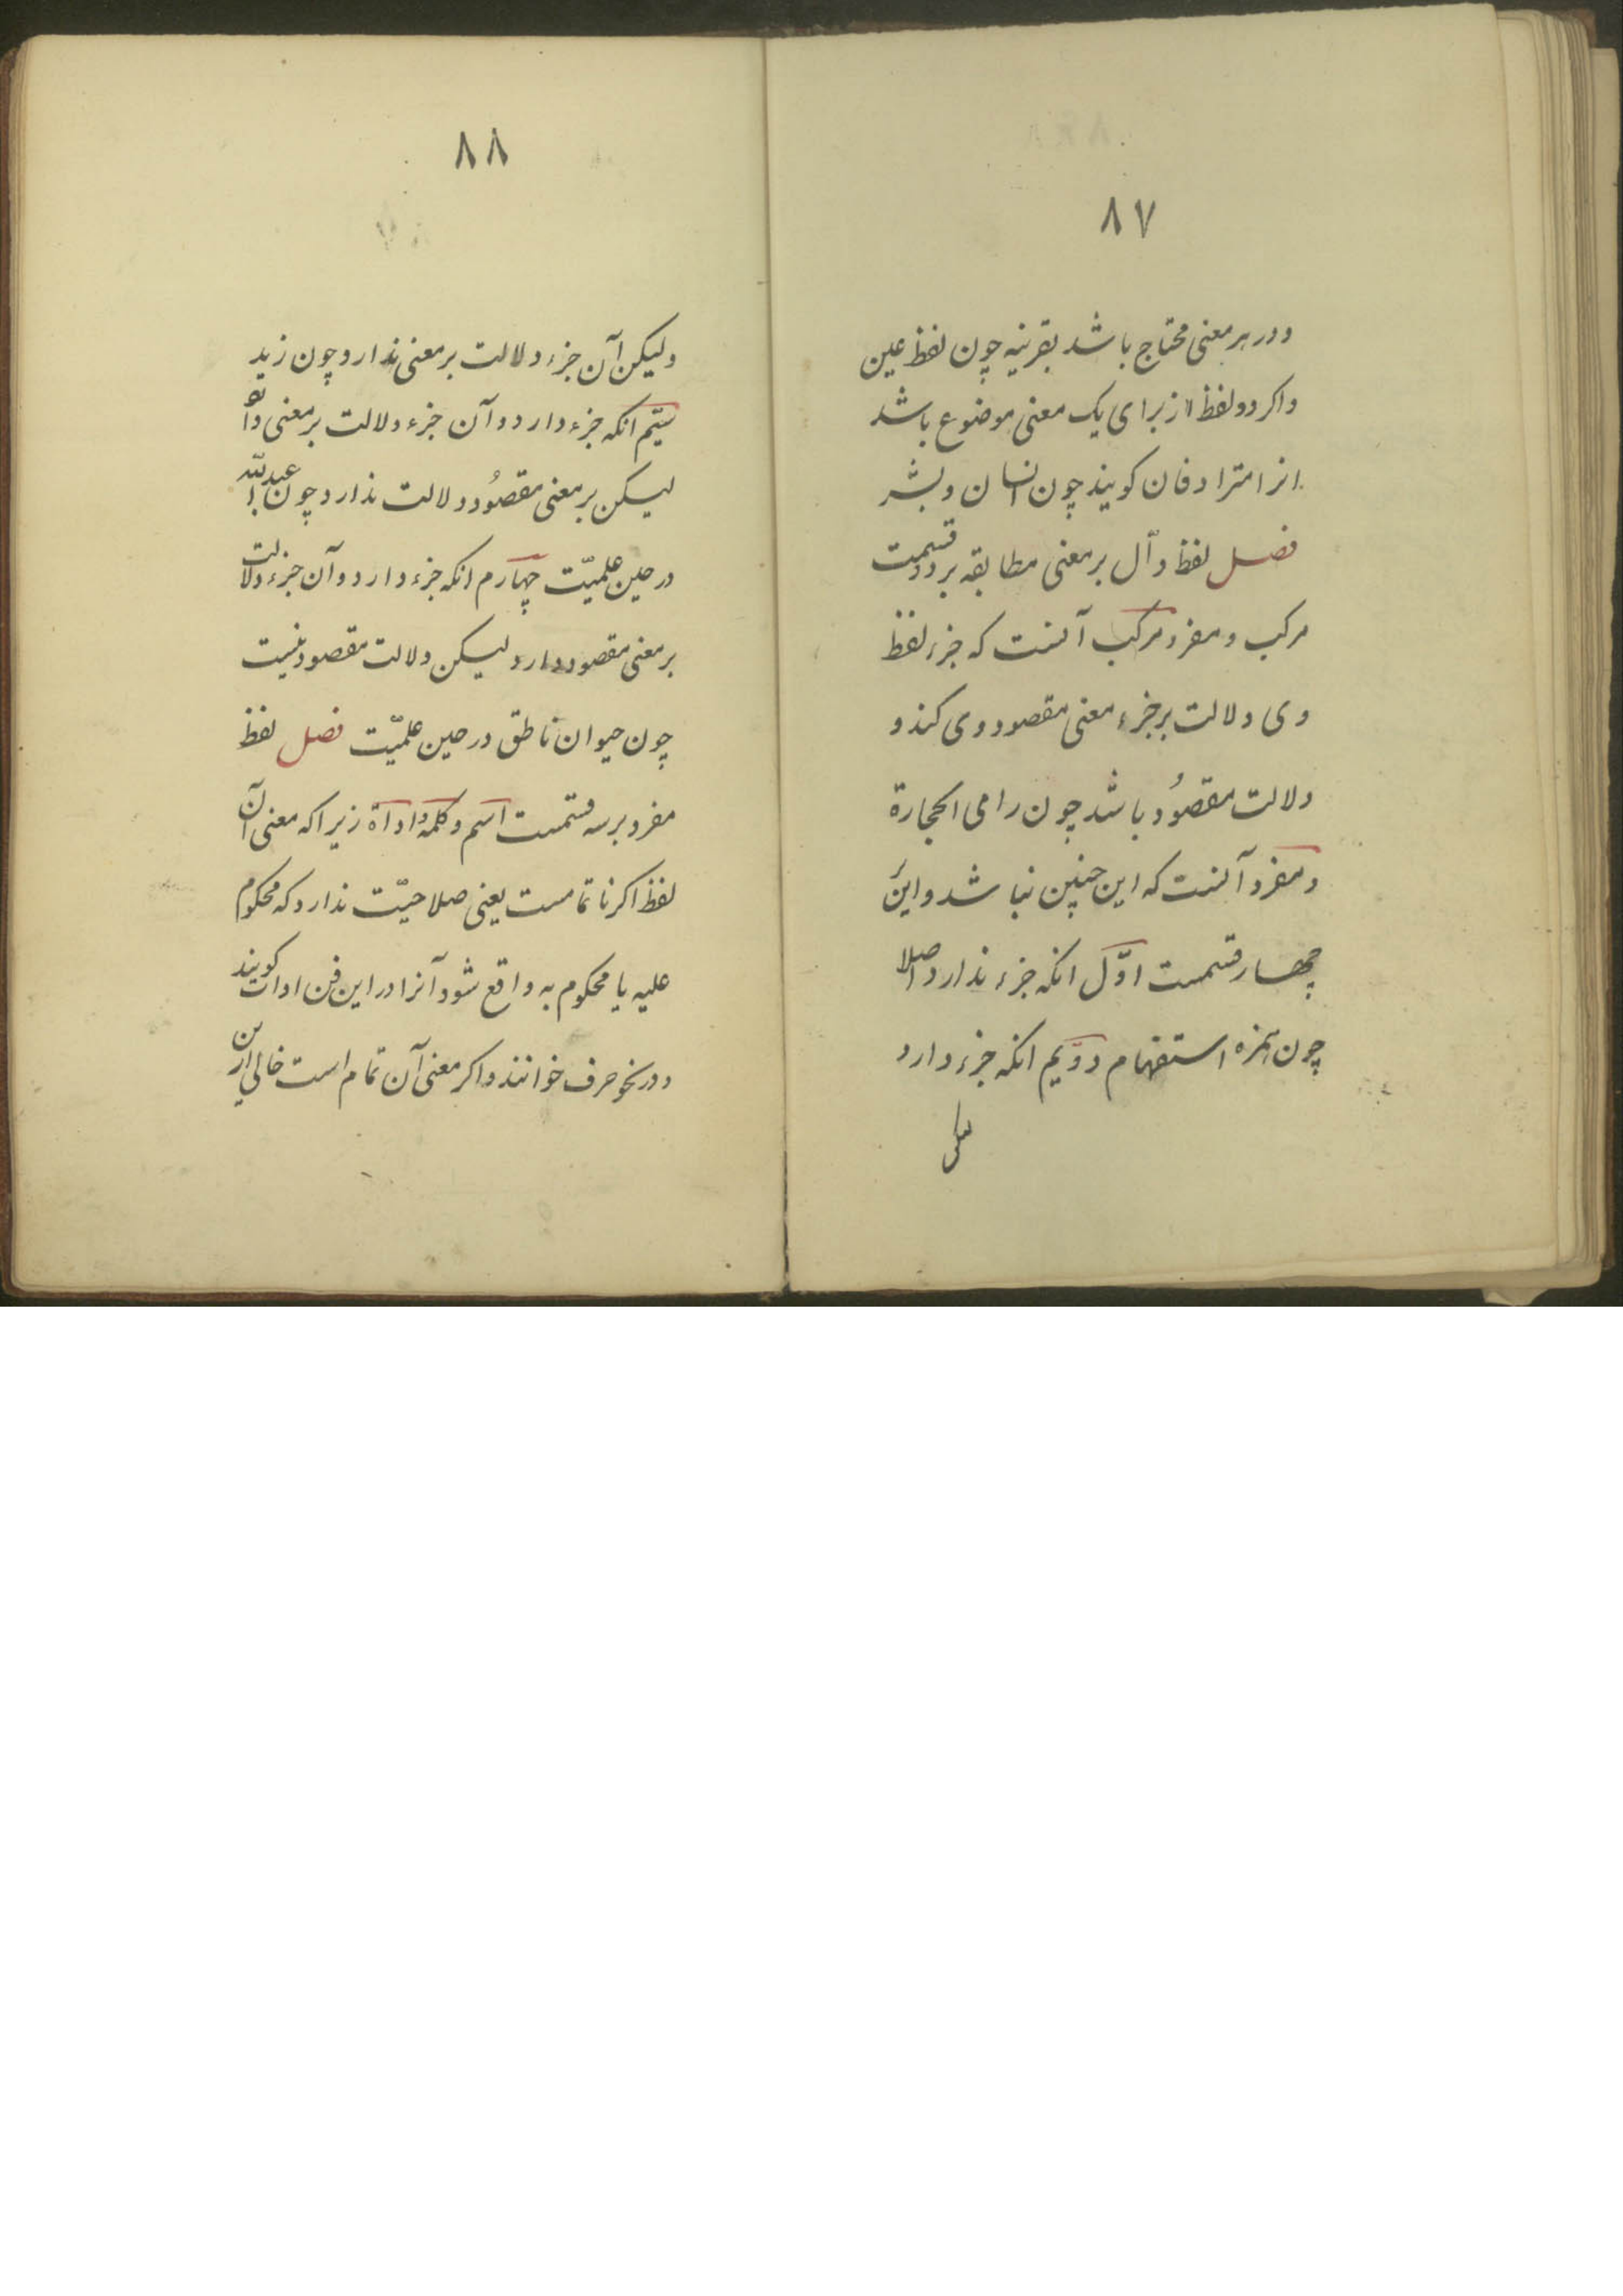 ۸۷
ودر هر معنی محتاج باشد بقرینه چون لفظ عین
واکر دو لفظ از برای یک معنی موضوع باشد
انرا مترادفان کویند چون انسان و بشر
فصل لفظ دآل بر معنی مطابقه بر دو قسمت
مرکب و مفرد مرکب آنست که جزء لفظ
وی دلالت بر جزء معنی مقصود وی کند و
دلالت مقصُود باشد چون رامی الحجارة
و مفرد آنست که این چنین نباشد و این
چهار قسمست اوّل انکه جزء ندارد اصلا
چون همزه استفهام دوّیم انکه جزء دارد
۸۸
ولیکن آن جزء دلالت بر معنی ندارد چون زید
سیّم انکه جزء دارد و آن جزء دلالت بر معنی دارد
لیکن بر معنی مقصُود دلالت ندارد چون عبدالله
در حین علمیّت چهارم انکه جزء دارد و آن جزء دلالت
بر معنی مقصود دارد لیکن دلالت مقصود نیست
چون حیوان ناطق در حین علمیّت فصل لفظ
مفرد بر سه قسمست اسم و کلمه و اداة زیرا که معنی آن
لفظ اکر ناتمامست یعنی صلاحیّت ندارد که محکوم
علیه یا محکوم به واقع شود آنرا در این فن ادات کویند
و در نحو حرف خوانند و اکر معنی آن تمام است خالی از این